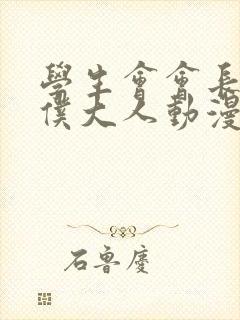 學生會會長
僕大人動漫
石魯慶